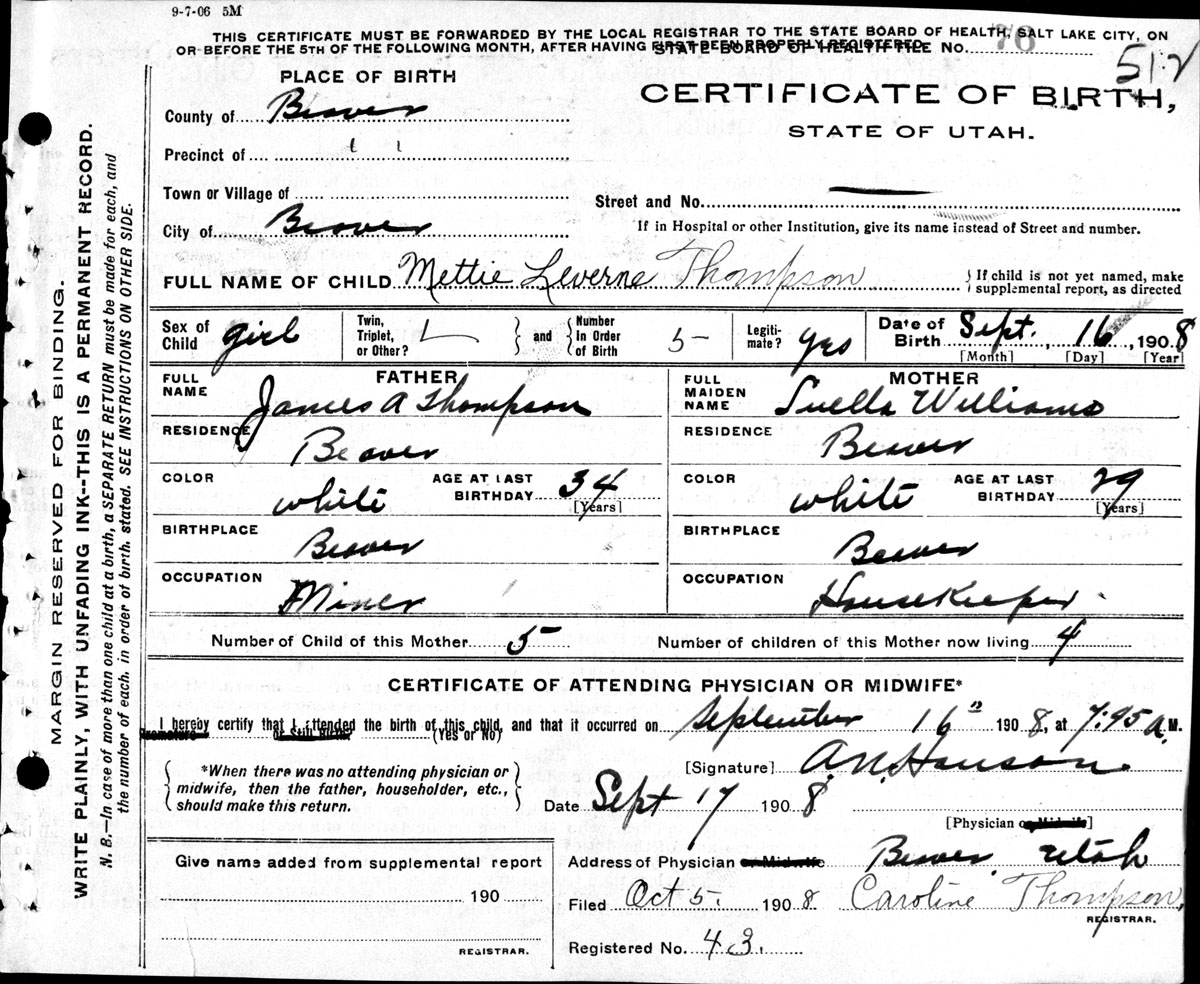 9-7-06 5M
THIS CERTIFICATE MUST BE FORWARDED BY THE LOCAL REGISTRAR TO THE STATE BOARD OF HEALTH, SALT LAKE CITY, ON
OR BEFORE THE 5TH OF THE FOLLOWING MONTH, AFTER HAVING FIRST BEEN PROPERLY REGISTERED.
STATE BOARD OF HEALTH FILE No. 76
512
PLACE OF BIRTH
CERTIFICATE OF BIRTH,
STATE OF UTAH.
County of Beaver
Precinct of " "
Town or Village of
Street and No.
City of Beaver
If in Hospital or other Institution, give its name instead of Street and number.
FULL NAME OF CHILD Mettie Leverne Thompson
If child is not yet named, make supplemental report, as directed
Sex of Child girl
Twin, Triplet, or Other?
and
Number In Order of Birth 5
Legiti-mate? yes
Date of Birth Sept. 16, 1908
[Month] [Day] [Year]
FATHER
MOTHER
FULL NAME James A Thompson
FULL MAIDEN NAME Luella Williams
RESIDENCE Beaver
RESIDENCE Beaver
COLOR white
AGE AT LAST BIRTHDAY 34 [Years]
COLOR white
AGE AT LAST BIRTHDAY 29 [Years]
BIRTHPLACE Beaver
BIRTHPLACE Beaver
OCCUPATION Miner
OCCUPATION HouseKeeper
Number of Child of this Mother 5
Number of children of this Mother now living 4
CERTIFICATE OF ATTENDING PHYSICIAN OR MIDWIFE*
I hereby certify that I attended the birth of this child, and that it occurred on September 16" 1908, at 7:45 a. M.
or Still Birth (Yes or No)
*When there was no attending physician or
midwife, then the father, householder, etc.,
should make this return.
[Signature] A.N. Hanson
Date Sept 17 1908
[Physician or Midwife]
Give name added from supplemental report
190
REGISTRAR.
Address of Physician or Midwife Beaver, Utah
Filed Oct 5. 1908 Caroline Thompson,
REGISTRAR.
Registered No. 43.
MARGIN RESERVED FOR BINDING.
WRITE PLAINLY, WITH UNFADING INK--THIS IS A PERMANENT RECORD.
N. B.--In case of more than one child at a birth, a SEPARATE RETURN must be made for each, and
the number of each, in order of birth, stated. SEE INSTRUCTIONS ON OTHER SIDE.